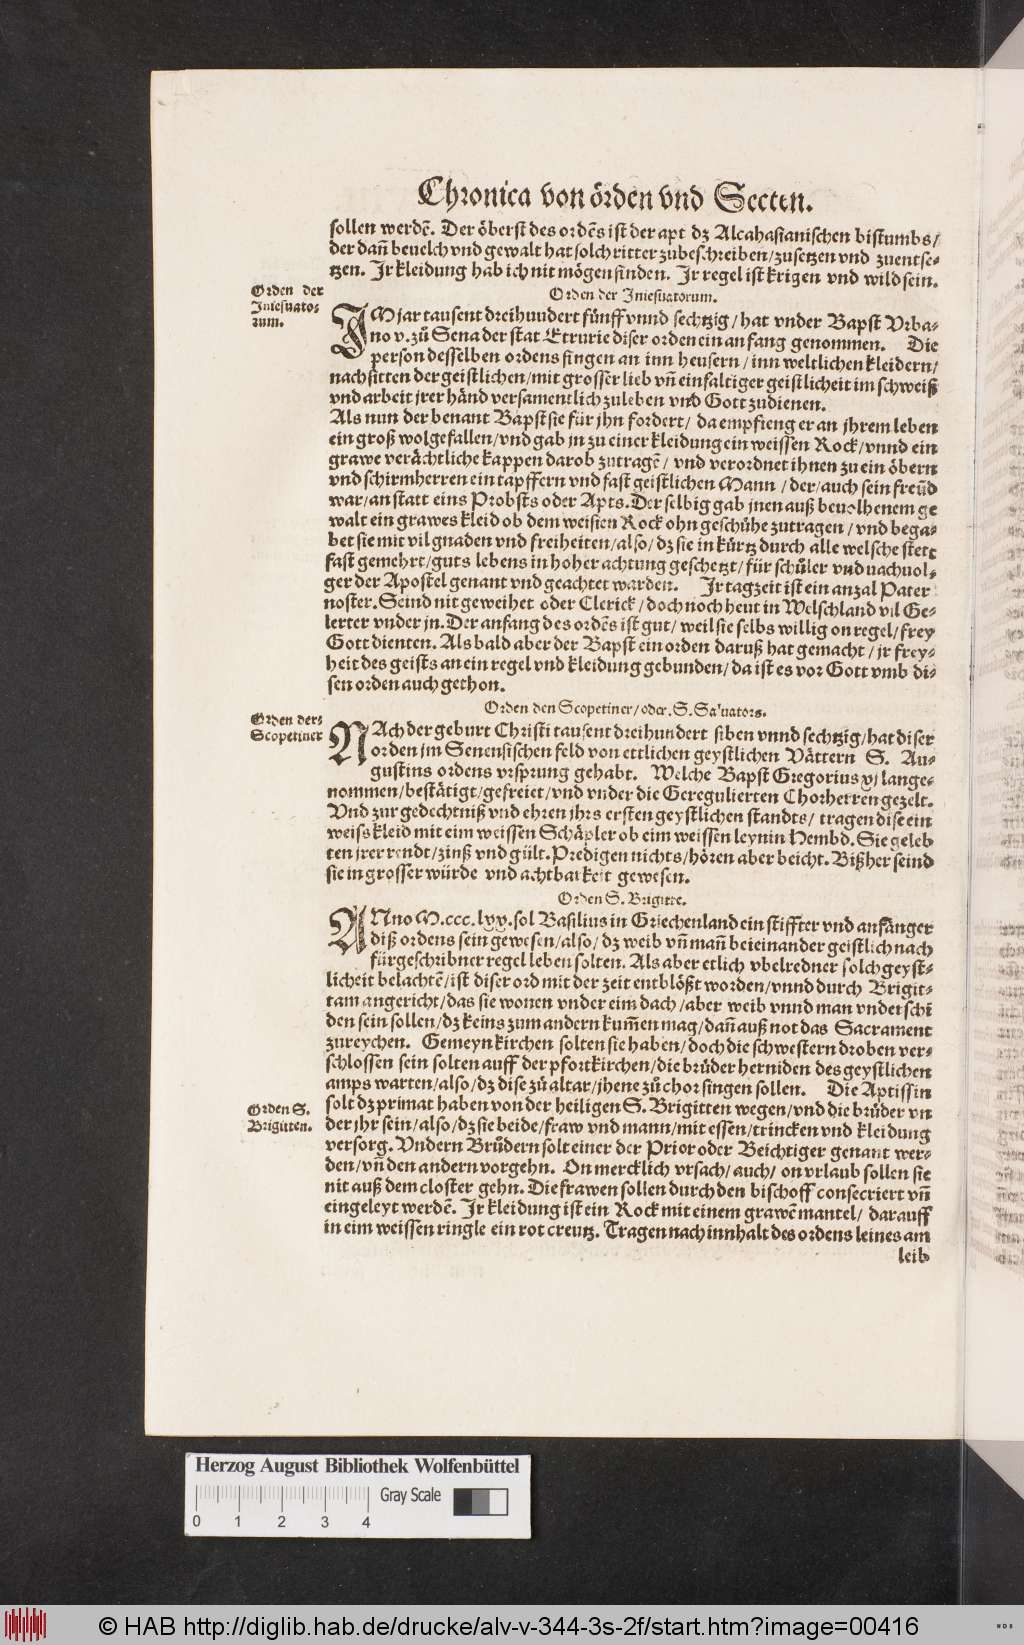 Chronica von örden vnd Secten.
sollen werdē. Der öberst des ordēs ist der apt dz Alcahasianischen bistumbs/
der dañ beuelch vnd gewalt hat solch ritter zubeschreiben/zusetzen vnd zuentse-
tzen. Jr kleidung hab ich nit mögen finden. Jr regel ist krigen vnd wild sein.
Orden der
Iniesuato-
rum.
Orden der Iniesuatorum.
IM jar tausent dreihundert fünff vnnd sechtzig/hat vnder Bapst Vrba-
no v. zů Sena der stat Etrurie diser orden ein anfang genommen. Die
person desselben ordens fingen an inn heusern/inn weltlichen kleidern/
nach sitten der geistlichen/mit grosser lieb vñ einfaltiger geistlicheit im schweiß
vnd arbeit jrer händ versamentlich zuleben vnd Gott zudienen.
Als nun der benant Bapst sie für jhn fordert/ da empfieng er an jhrem leben
ein groß wolgefallen/vnd gab jn zu einer kleidung ein weissen Rock/vnnd ein
grawe verächtliche kappen darob zutragē/ vnd verordnet ihnen zu ein öbern
vnd schirmherren ein tapffern vnd fast geistlichen Mann/der/auch sein freūd
war/an statt eins Probsts oder Apts. Der selbig gab jnen auß beuolhenem ge
walt ein grawes kleid ob dem weissen Rock ohn geschühe zutragen/vnd bega-
bet sie mit vil gnaden vnd freiheiten/also/dz sie in kürtz durch alle welsche stett
fast gemehrt/guts lebens in hoher achtung geschetzt/für schüler vnd nachuol-
ger der Apostel genant vnd geachtet warden. Jr tagzeit ist ein anzal Pater
noster. Seind nit geweihet oder Clerick/doch noch heut in Welschland vil Ge-
lerter vnder jn. Der anfang des ordēs ist gut/weil sie selbs willig on regel/frey
Gott dienten. Als bald aber der Bapst ein orden daruß hat gemacht/jr frey-
heit des geists an ein regel vnd kleidung gebunden/da ist es vor Gott vmb di-
sen orden auch gethon.
Orden der
Scopetiner
Orden den Scopetiner/oder. S. Saluators.
NAch der geburt Christi tausent dreihundert siben vnnd sechtzig/hat diser
orden im Senensischen feld von ettlichen geystlichen Vättern S. Au-
gustins ordens vrsprung gehabt. Welche Bapst Gregorius xj lange-
nommen/bestätigt/gefreiet/vnd vnder die Geregulierten Chorherren gezelt.
Vnd zur gedechtniß vnd ehren jhrs ersten geystlichen standts/ tragen dise ein
weiß kleid mit eim weissen Schäpler ob eim weissen leynin Hembd. Sie geleb
ten jrer rendt/zinß vnd gült. Predigen nichts/hören aber beicht. Bißher seind
sie in grosser würde vnd achtbarkeit gewesen.
Orden S. Brigitte.
ANno M.ccc.lxx. sol Basilius in Griechenland ein stiffter vnd anfänger
diß ordens sein gewesen/also/dz weib vñ mañ beieinander geistlich nach
fürgeschribner regel leben solten. Als aber etlich vbelredner solch geyst-
licheit belachtē/ist diser ord mit der zeit entblößt worden/vnnd durch Brigit-
tam angericht/das sie wonen vnder eim dach/aber weib vnnd man vnderschi
den sein sollen/dz keins zum andern kum̄en mag/dañ auß not das Sacrament
zureychen. Gemeyn kirchen solten sie haben/doch die schwestern droben ver-
schlossen sein solten auff der pfortkirchen/die brüder herniden des geystlichen
amps warten/also/dz dise zů altar/jhene zů chor singen sollen. Die Aptissin
Orden S.
Brigitten.
solt dz primat haben von der heiligen S. Brigitten wegen/vnd die brüder vn
der jhr sein/also/dz sie beide/fraw vnd mann/mit essen/trincken vnd kleidung
versorg. Vndern Brůdern solt einer der Prior oder Beichtiger genant wer-
den/vñ den andern vorgehn. On mercklich vrsach/auch/on vrlaub sollen sie
nit auß dem closter gehn. Die frawen sollen durch den bischoff consecriert vñ
eingeleyt werdē. Jr kleidung ist ein Rock mit einem grawē mantel/ darauff
in eim weissen ringle ein rot creutz. Tragen nach innhalt des ordens leines am
leib
Herzog August Bibliothek Wolfenbüttel
Gray Scale
0 1 2 3 4
© HAB http://diglib.hab.de/drucke/alv-v-344-3s-2f/start.htm?image=00416